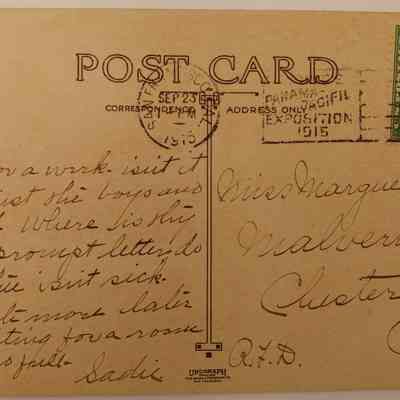 POST CARD
CORRESPONDENCE
ADDRESS ONLY
SAN FRANCISCO, CAL.
SEP 23
PM
1915
PANAMA-
PACIFIC
EXPOSITION
1915
for a week. isn't it
just the boys and
Where is thy
prompt letter, do
isn't sick.
more later
for a room
full-
Sadie
Miss Margue
Malvern
Chester
R.F.D.